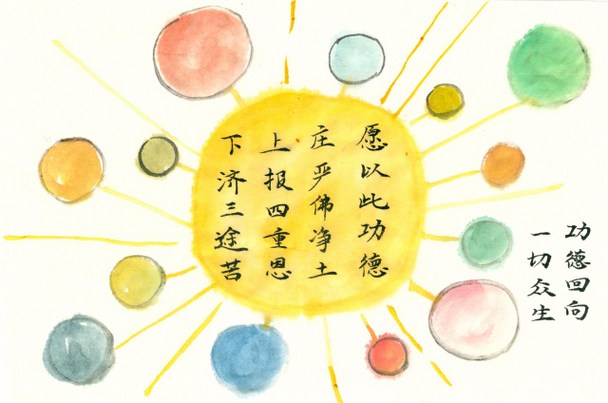 愿以此功德
庄严佛净土
上报四重恩
下济三途苦
功德回向
一切众生